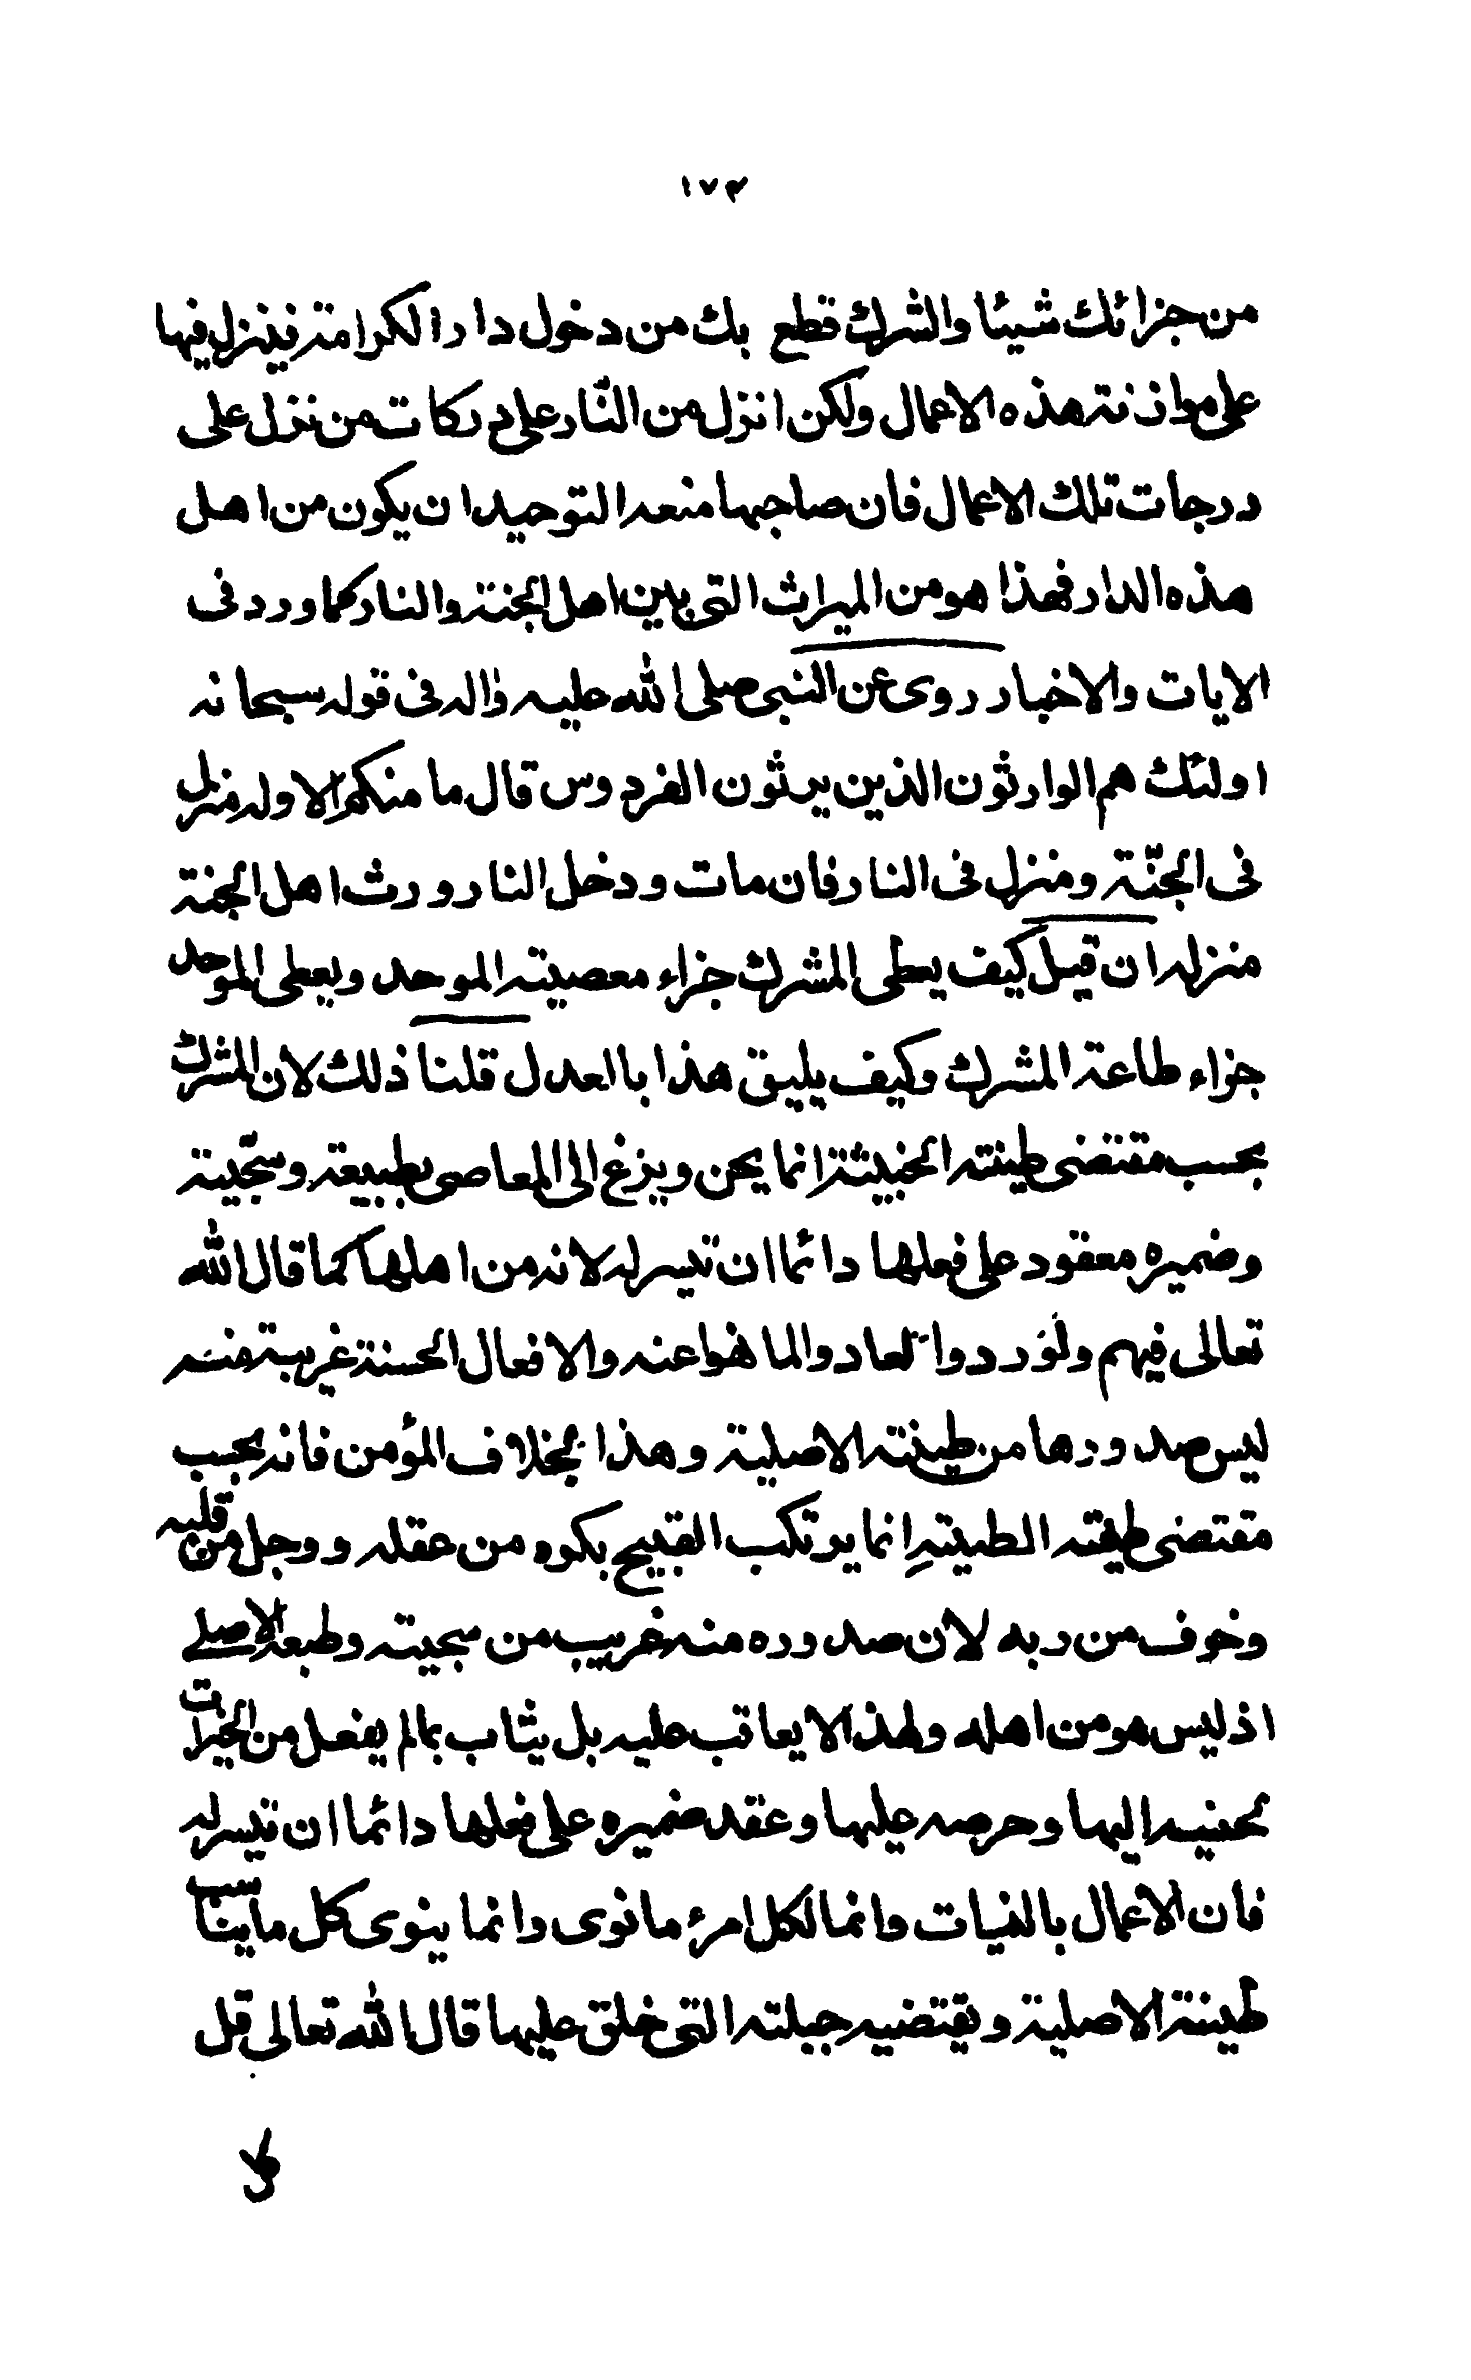 ١٧٣
من جزائك شيئا والشرك قطع بك من دخول دار الكرامة فينزل فيها
على موازنة هذه الاعمال ولكن انزل من النّار على دركات من نزل على
درجات تلك الاعمال فان صاحبها منعه التوحيد ان يكون من اهل
هذه الدار فهذا هو من الميراث التى بين اهل الجنة والنار كما ورد فى
الايات والاخبار روى عن النبى صلى الله عليه واله فى قوله سبحانه
اولئك هم الوارثون الذين يرثون الفردوس قال ما منكم الا وله منزل
فى الجنّة ومنزل فى النار فان مات ودخل النار ورث اهل الجنة
منزله ان قيل كيف يعطى المشرك جزاء معصيته الموحد ويعطى الموحد
جزاء طاعة المشرك وكيف يليق هذا بالعدل قلنا ذلك لان المشرك
بحسب مقتضى طينته الخبيثة انما يحن ويزغ الى المعاصى بطبيعة وسجّية
وضميره معقود على فعلها دائما ان تيسر له لانه من اهلها كما قال الله
تعالى فيهم ولو ردوا لعادوا لما نهوا عنه والافعال الحسنة غريبة منه
ليس صدورها من طينته الاصلية وهذا بخلاف المؤمن فانه بحسب
مقتضى طينته الطيبة انما يرتكب القبيح بكره من عقله ووجل من قلبه
وخوف من ربه لان صدوره منه غريب من سجيته وطبعه الاصلے
اذ ليس هو من اهله ولهذا لا يعاقب عليه بل يثاب بما لم يفعل من الخيرات
لحنينه اليها وحرصه عليها وعقد ضميره على فعلها دائما ان تيسر له
فان الاعمال بالنيات وانما لكل امرئ ما نوى وانما ينوى كل ما يناسب
طينته الاصلية ويقتضيه جبلته التى خلق عليها قال الله تعالى قل